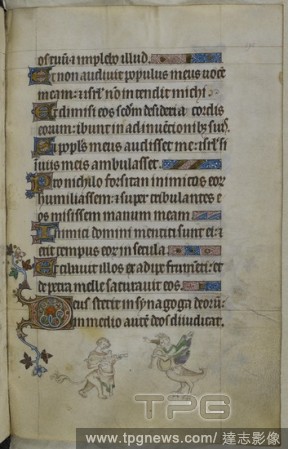 os tuū: ⁊ impleto illud.
Et non audivit populus meus voce
meam: ⁊ isrl' no intendit michi
Et dimisi eos scdm desideria cordis
eorum: ibunt in adinventionibz suis.
Si popl's meus audisset me: isrl' si
in viis meis ambulasset.
Pro nichilo forsitan inimicos eor
humiliassem: ⁊ super tribulantes e
os misissem manum meam
Inimici domini mentiti sunt ei: ⁊
erit tempus eor in secula
Et cibavit illos ex adipe frumēti: et
de petra melle saturavit eos.
Deus stetit in synagoga deorū:
in medio autē deos diiudicat.
TPG
www.tpgnews.com/ 達志影像